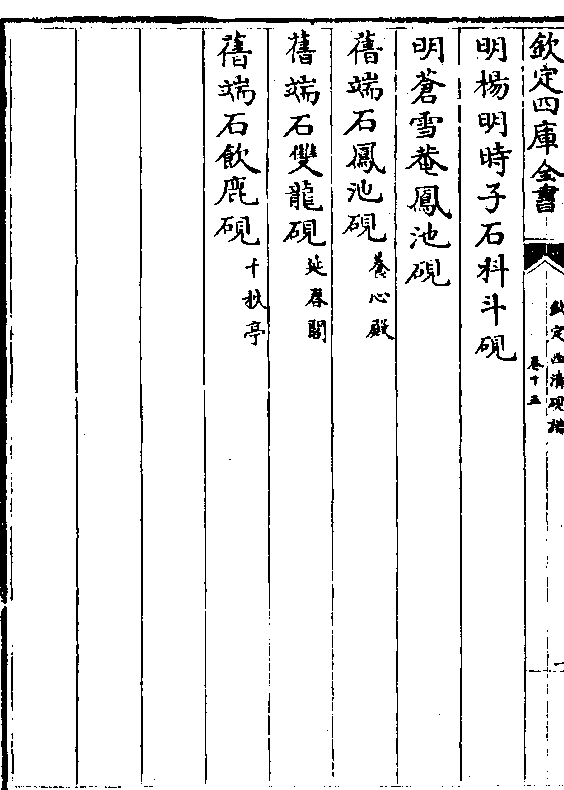 欽定四庫全書
欽定西清硯譜
卷十五
一
明楊明時子石科斗硯
明蒼雪菴鳳池硯
舊端石鳳池硯養心殿
舊端石雙龍硯延春閣
舊端石飲鹿硯十秋亭